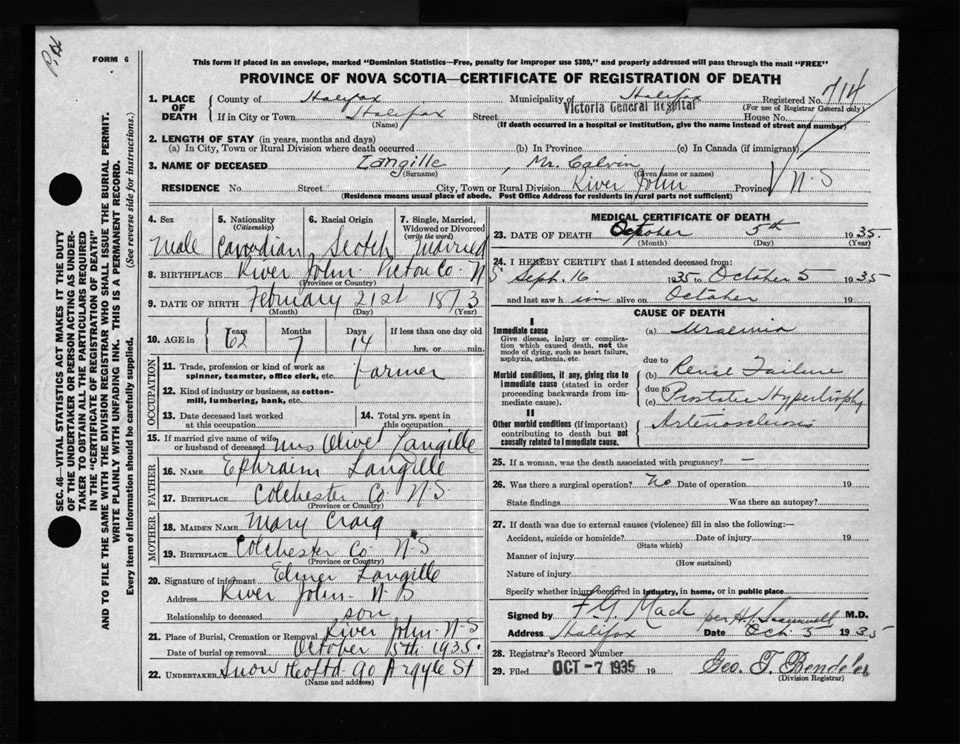 FORM 6
This form if placed in an envelope, marked "Dominion Statistics—Free, penalty for improper use $300," and properly addressed will pass through the mail "FREE"
PROVINCE OF NOVA SCOTIA—CERTIFICATE OF REGISTRATION OF DEATH
SEC. 46—VITAL STATISTICS ACT MAKES IT THE DUTY
OF THE UNDERTAKER OR PERSON ACTING AS UNDER-
TAKER TO OBTAIN ALL THE PARTICULARS REQUIRED
IN THE "CERTIFICATE OF REGISTRATION OF DEATH"
AND TO FILE THE SAME WITH THE DIVISION REGISTRAR WHO SHALL ISSUE THE BURIAL PERMIT.
WRITE PLAINLY WITH UNFADING INK. THIS IS A PERMANENT RECORD.
Every item of information should be carefully supplied. (See reverse side for instructions.)
1. PLACE OF DEATH County of Halifax Municipality of Halifax Registered No. 714
Victoria General Hospital (For use of Registrar General only)
If in City or Town Halifax Street House No.
(Name) (If death occurred in a hospital or institution, give the name instead of street and number)
2. LENGTH OF STAY (in years, months and days)
(a) In City, Town or Rural Division where death occurred (b) In Province (c) In Canada (if immigrant)
3. NAME OF DECEASED Langille, Mr. Calvin
(Surname) (Given name or names)
RESIDENCE No. Street City, Town or Rural Division River John Province N-S
(Residence means usual place of abode. Post Office Address for residents in rural parts not sufficient)
4. Sex 5. Nationality (Citizenship) 6. Racial Origin 7. Single, Married, Widowed or Divorced (write the word)
Male Canadian Scotch Married
8. BIRTHPLACE River John Pictou Co- N S
(Province or Country)
9. DATE OF BIRTH February 21st 1873
(Month) (Day) (Year)
10. AGE in Years Months Days If less than one day old
62 7 14 hrs. or min.
OCCUPATION
11. Trade, profession or kind of work as spinner, teamster, office clerk, etc. Farmer
12. Kind of industry or business, as cotton-mill, lumbering, bank, etc.
13. Date deceased last worked at this occupation 14. Total yrs. spent in this occupation
15. If married give name of wife or husband of deceased Mrs Olive Langille
FATHER
16. NAME Ephraim Langille
17. BIRTHPLACE Colchester Co- N-S-
(Province or Country)
MOTHER
18. MAIDEN NAME Mary Craig
19. BIRTHPLACE Colchester Co- N-S
(Province or Country)
20. Signature of informant Elmer Langille
Address River John- N-S
Relationship to deceased son
21. Place of Burial, Cremation or Removal River John- N-S
Date of burial or removal October 1935
22. UNDERTAKER Snow 90 Argyle St
(Name and address)
MEDICAL CERTIFICATE OF DEATH
23. DATE OF DEATH October 5th 1935
(Month) (Day) (Year)
24. I HEREBY CERTIFY that I attended deceased from:
Sept. 16 1935 to October 5 1935
and last saw him alive on October 19
CAUSE OF DEATH
I
Immediate cause (a) Uraemia
Give disease, injury or complication which caused death, not the mode of dying, such as heart failure, asphyxia, asthenia, etc.
due to
Morbid conditions, if any, giving rise to immediate cause (stated in order proceeding backwards from immediate cause). (b) Renal Failure
due to
(c) Prostatic Hypertrophy
II
Other morbid conditions (if important) contributing to death but not causally related to immediate cause. Arteriosclerosis
25. If a woman, was the death associated with pregnancy? —
26. Was there a surgical operation? No Date of operation 19
State findings Was there an autopsy?
27. If death was due to external causes (violence) fill in also the following:—
Accident, suicide or homicide? Date of injury 19
(State which)
Manner of injury
(How sustained)
Nature of injury
Specify whether injury occurred in industry, in home, or in public place
Signed by F. G. Mack per M.D.
Address Halifax Date Oct. 5 1935
28. Registrar's Record Number
29. Filed OCT -7 1935 19 Geo. T. Bendeler
(Division Registrar)